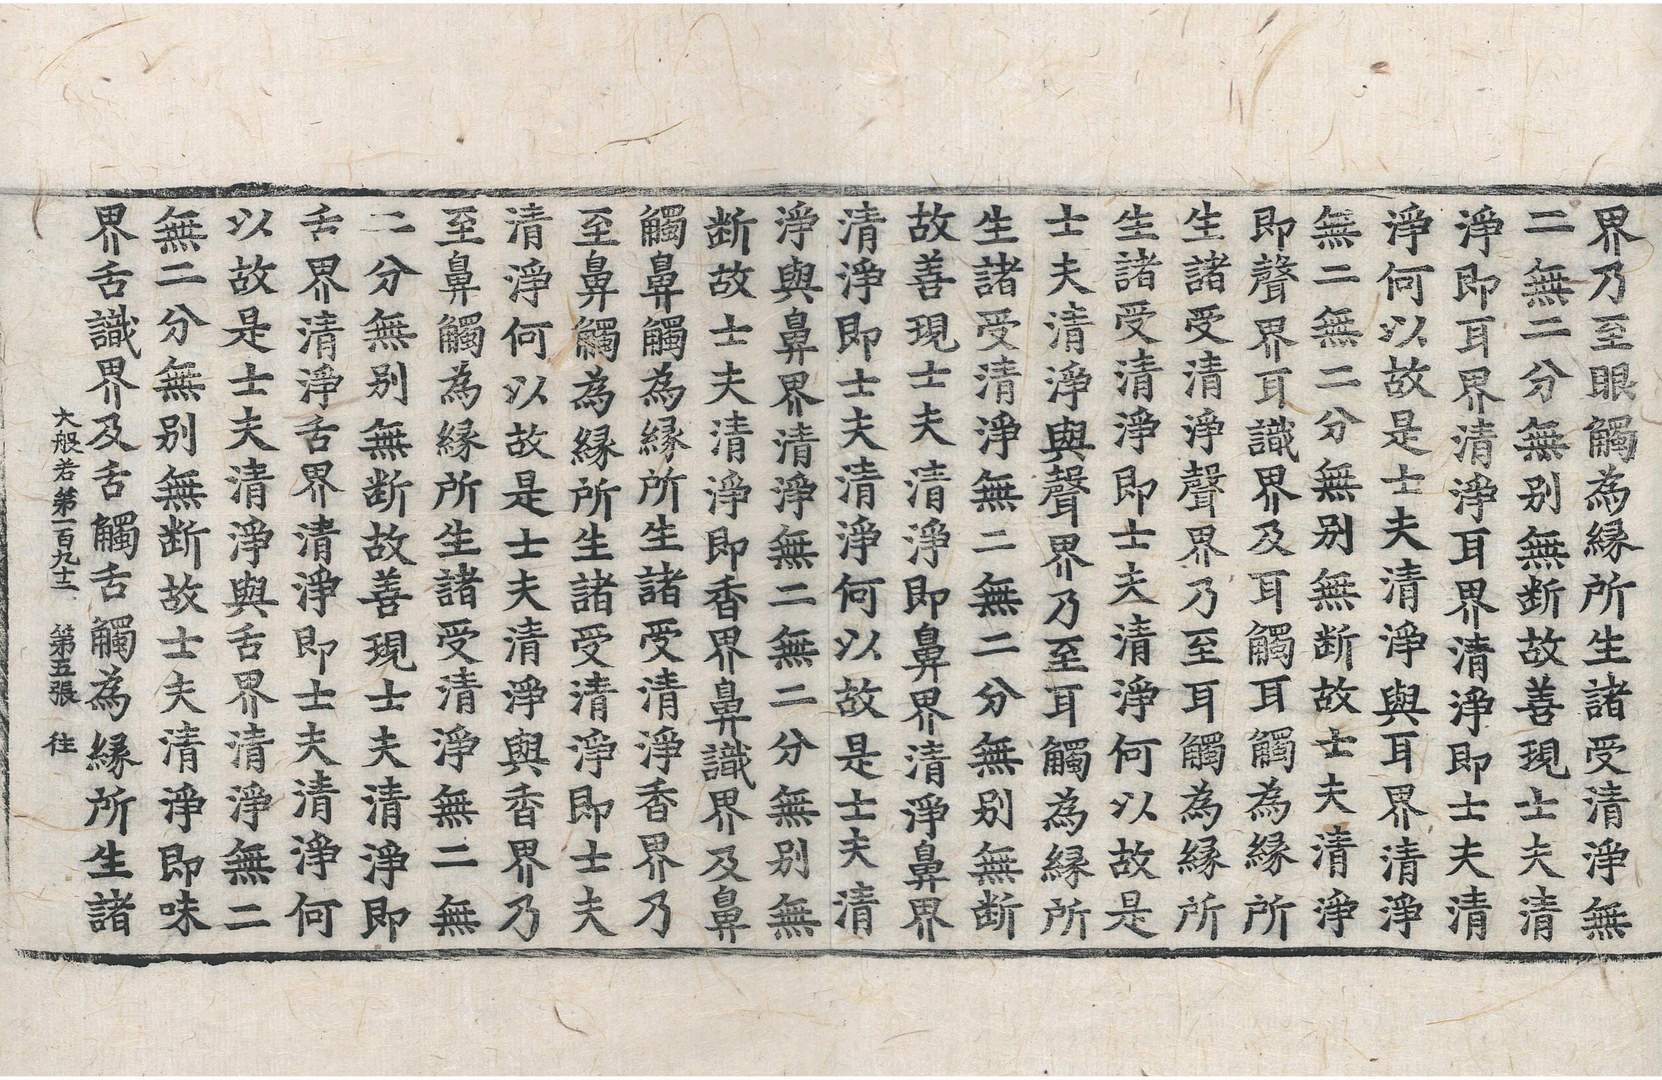 界乃至眼觸為縁所生諸受清淨無
二無二分無別無断故善現士夫清
淨即耳界清淨耳界清淨即士夫清
淨何以故是士夫清淨與耳界清淨
無二無二分無別無断故士夫清淨
即聲界耳識界及耳觸耳觸為縁所
生諸受清淨聲界乃至耳觸為縁所
生諸受清淨即士夫清淨何以故是
士夫清淨與聲界乃至耳觸為縁所
生諸受清淨無二無二分無別無断
故善現士夫清淨即鼻界清淨鼻界
清淨即士夫清淨何以故是士夫清
淨與鼻界清淨無二無二分無別無
断故士夫清淨即香界鼻識界及鼻
觸鼻觸為縁所生諸受清淨香界乃
至鼻觸為縁所生諸受清淨即士夫
清淨何以故是士夫清淨與香界乃
至鼻觸為縁所生諸受清淨無二無
二分無別無断故善現士夫清淨即
舌界清淨舌界清淨即士夫清淨何
以故是士夫清淨與舌界清淨無二
無二分無別無断故士夫清淨即味
界舌識界及舌觸舌觸為縁所生諸
大般若第一百九十二 第五張 往